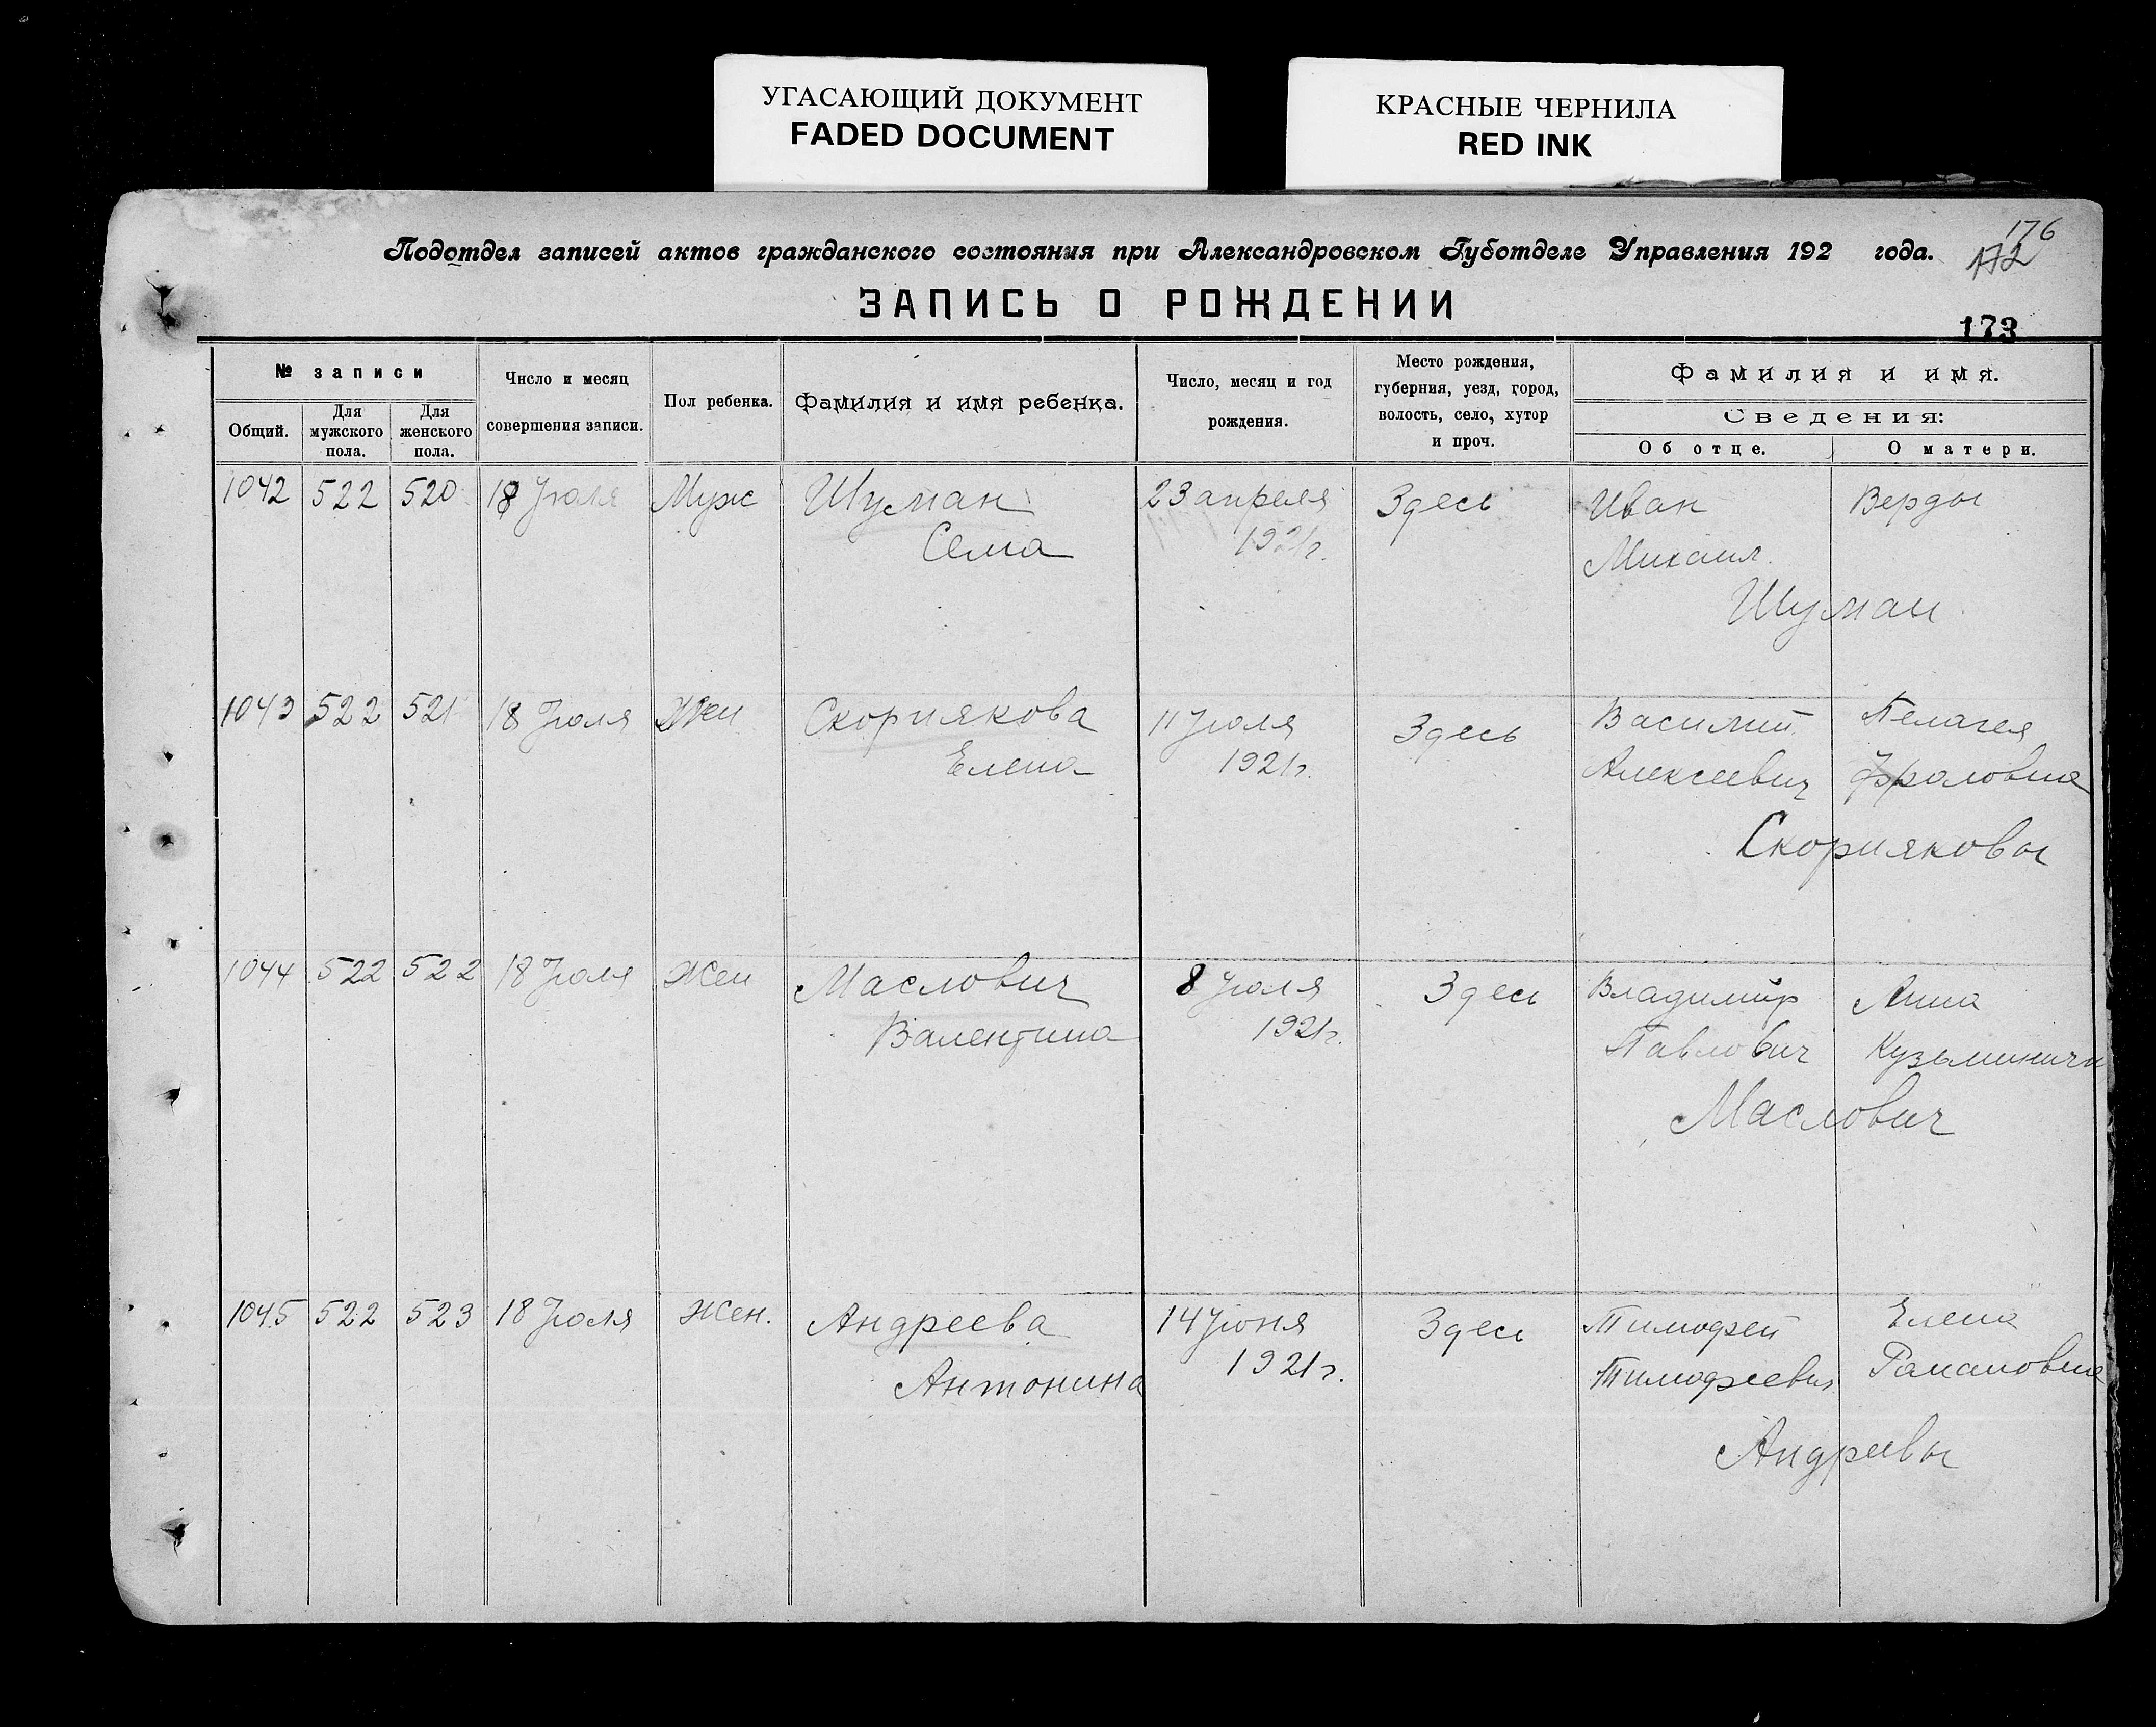 УГАСАЮЩИЙ ДОКУМЕНТ
FADED DOCUMENT
КРАСНЫЕ ЧЕРНИЛА
RED INK
176
172
Подотдел записей актов гражданского состояния при Александровском Губотделе Управления 192 года.
ЗАПИСЬ О РОЖДЕНИИ
173
№ записи
Общий.
Для мужского пола.
Для женского пола.
Число и месяц
совершения записи.
Пол ребенка.
Фамилия и имя ребенка.
Число, месяц и год
рождения.
Место рождения,
губерния, уезд, город,
волость, село, хутор
и проч.
Фамилия и имя.
Сведения:
Об отце.
О матери.
1042 522 520 18 Июля Муж Шуман 23 апреля Здесь Иван Верды
Сема 1921г. Михаил.
Шуман
1043 522 521 18 Июля Жен Скорнякова 11 Июля Здесь Василий Пелагея
Елена 1921г. Алексеевич Фроловна
Скорняковы
1044 522 522 18 Июля Жен Маслович 8 Июля Здесь Владимир Анна
Валентина 1921г. Павлович Кузьминична
Маслович
1045 522 523 18 Июля Жен. Андреева 14 Июня Здесь Тимофей Елена
Антонина 1921г. Тимофеевич Рамановна
Андреевы